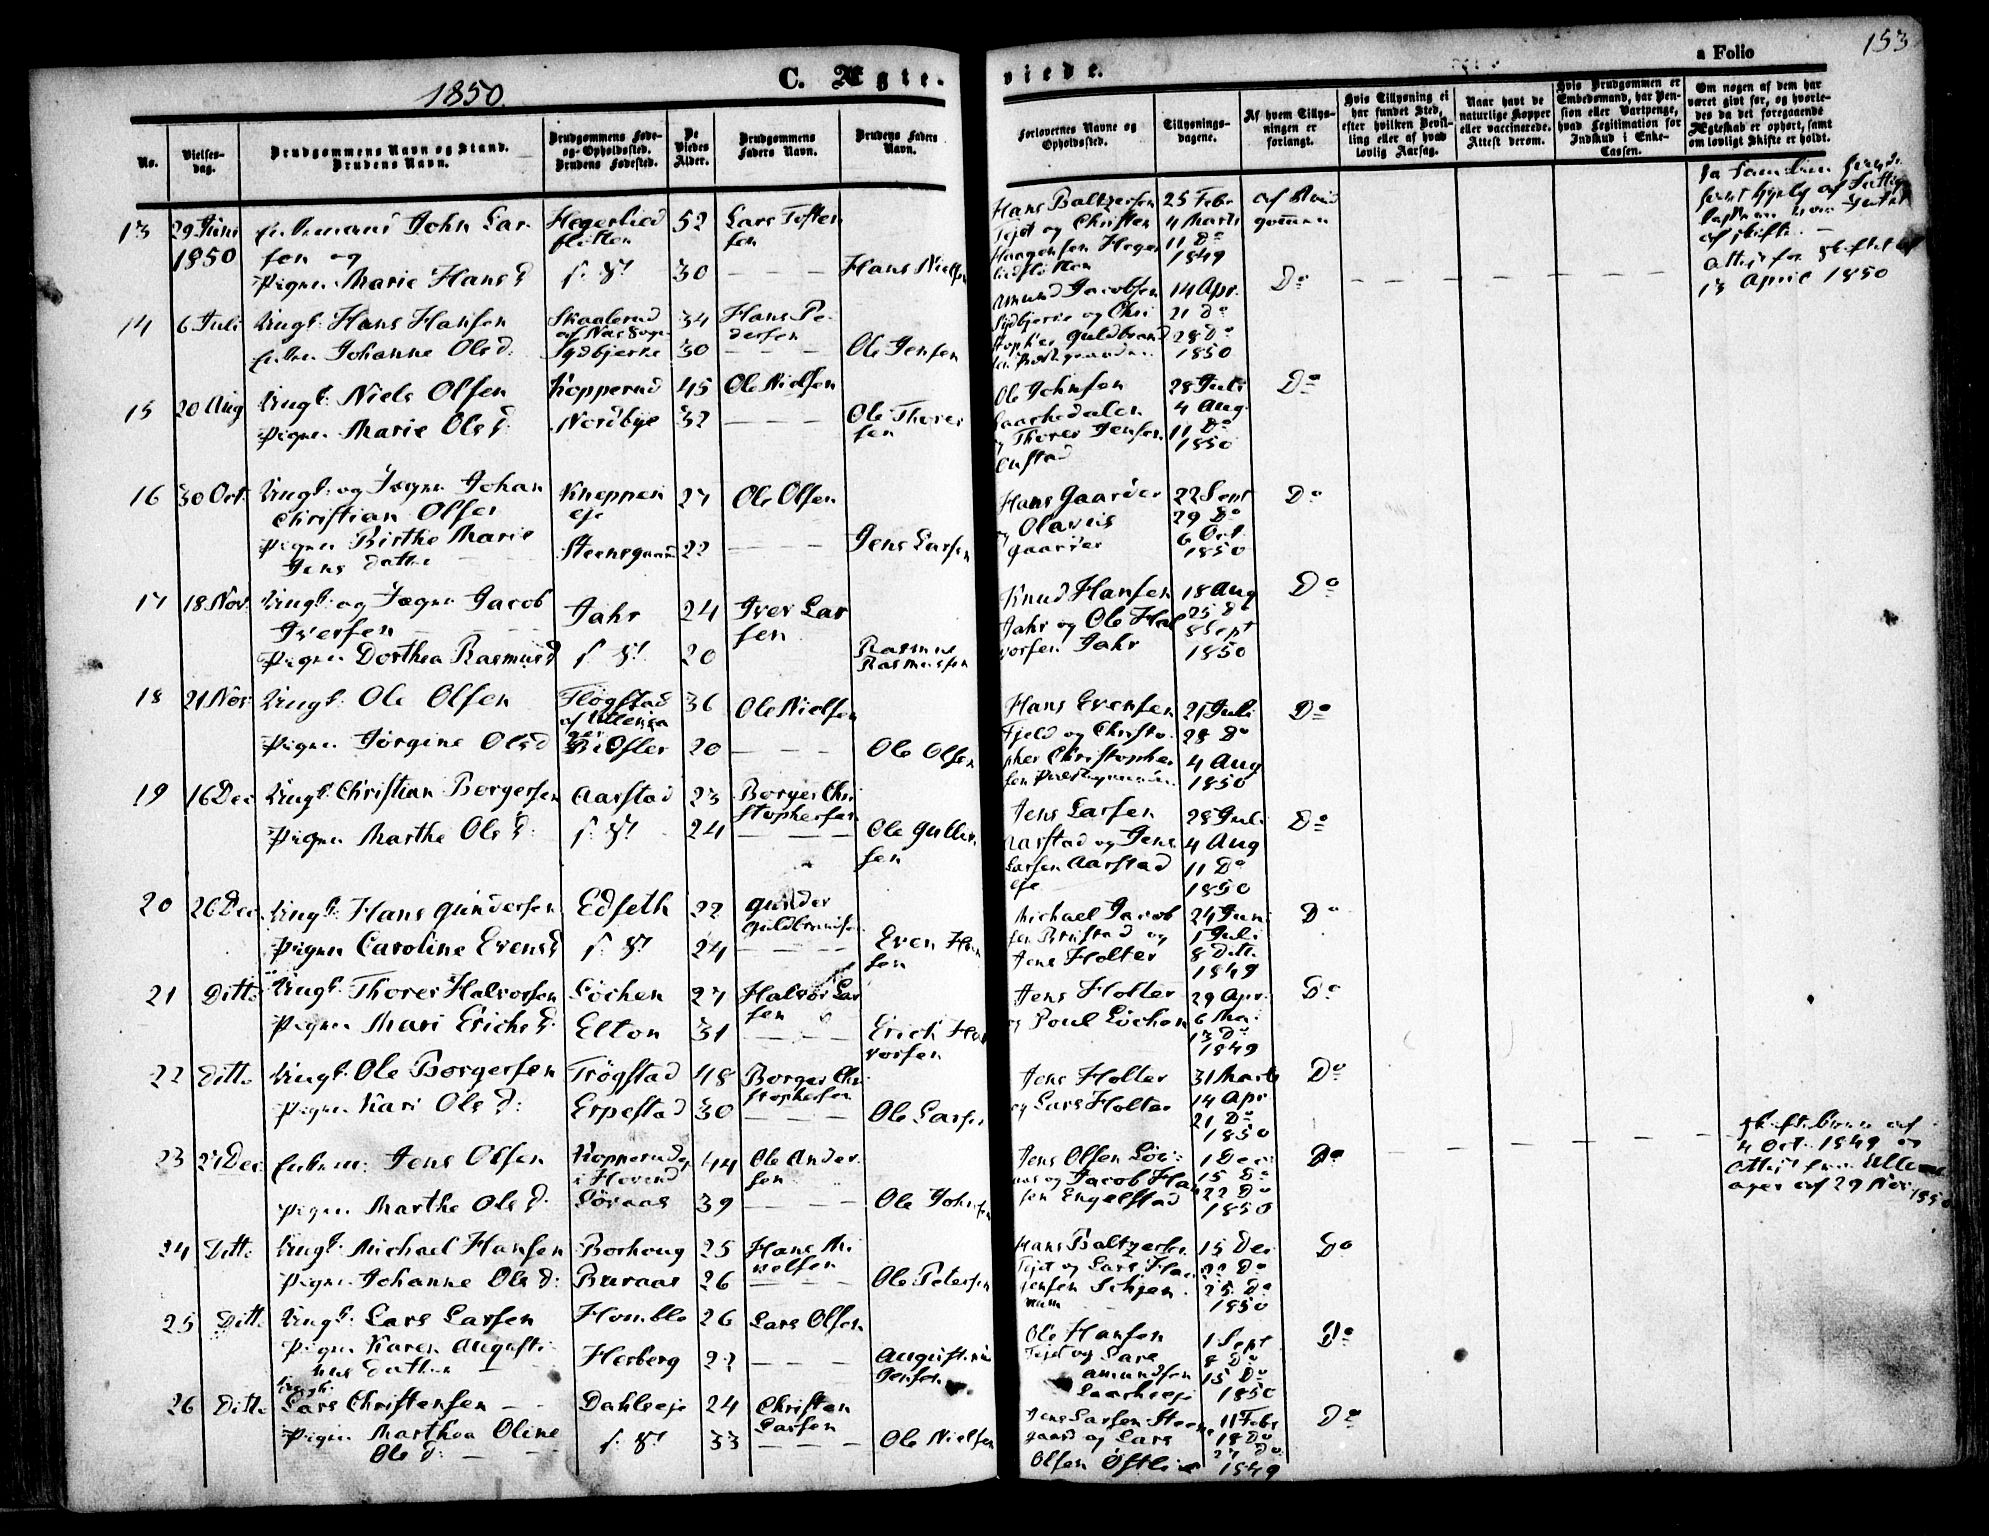 1850.
C. Ægte-
viede.
a Folio
153
No.
Vielses-
dag.
Brudgommens Navn og Stand.
Brudens Navn.
Brudgommens Føde-
og Opholdssted.
Brudens Fødested.
De
Viedes
Alder.
Brudgommens
Faders Navn.
Brudens Faders
Navn.
Forlovernes Navne og
Opholdssted.
Tillysnings-
dagene.
Af hvem Tillys-
ningen er
forlangt.
Hvis Tillysning ei
har fundet Sted,
efter hvilken Bevil-
ling eller af hvad
lovlig Aarsag.
Naar havt de
naturlige Kopper
eller vaccinerede.
Attest derom.
Hvis Brudgommen er
Embedsmand, har Pen-
sion eller Vartpenge,
hvad Legitimation for
Indskud i Enke-
Cassen.
Om nogen af dem har
været gift før, og hvorle-
des da det foregaaende
Ægteskab er ophørt, samt
om lovligt Skifte er holdt.
13 29 Juni 1850
Enkemand John Lar
sen og
Pigen Marie Hansd
52 Lars Tosten
sen
30 — — — Hans Nielsen
Hans Baltzersen
Tejet og Christen
Haagensen Heger
25 Febr
4 Marts
11 Do
1849
af Brud
gommen
af skifte. —
Attest for skiftet af
13 April 1850
14 6 Juli
Ungk: Hans Hansen
Enken Johanne Olsd:
Skaalerud
af Næs Sogn
Sydbjerke
34 Hans Pe
dersen
30 — — — Ole Jensen
Amund Jacobsen
Sydbjerke og Chri
stopher Guldbrand
14 Apr.
21 Do
28 Do
1850
Do
15 20 Aug
Ungk: Niels Olsen
Pigen Marie Olsd:
Kopperud
Nordbye
45 Ole Nielsen
32 — — — Ole Thores
sen
Ole Johnsen
og Thores Jensen
28 Juli
4 Aug.
11 Do
1850
Do
16 30 Oct.
Ungk: og Jægr Johan
Christian Olsen
Pigen Birthe Marie
Jens datter
Kneppen
eje
Steensgaard
27 Ole Olsen
22 — — — Jens Larsen
Hans Gaarder
og Olaveis
Gaarder
22 Sept
29 Do
6 Oct.
1850
Do
17 18 Nov.
Ungk: og Jægr Jacob
Iversen — — —
Pigen Dorthea Rasmusd
Jahr
s. St.
24 Iver Lar
sen
20 Rasmus
Rasmussen
Knud Hansen
Jahr og Ole Hal
vorsen Jahr
18 Aug
25 Do
8 Sept
1850
Do
18 21 Nov.
Ungk: Ole Olsen
Pigen Jørgine Olsd
Fløgstad
af Ullensa
ger
36 Ole Nielsen
20 — — — Ole Olsen
Hans Evensen
Fjeld og Christo-
pher Christopher
sen Præstegaarden
21 Juli
28 Do
4 Aug
1850
Do
19 16 Dec
Ungk: Christian Borgersen
Pigen Marthe Olsd:
Aarstad
s. St.
23 Borger Chri
stophersen
24 — — — Ole Gulbr
sen
Jens Larsen
Aarstad og Jens
Larsen Aarstad
eje
28 Juli
4 Aug
11 Do
1850
Do
20 26 Dec.
Ungk: Hans Gundersen
Pigen Caroline Evensd
Edseth
s. St.
22 Gunder
Guldbrandsen
24 — — — Even Han
sen
Michael Jacob
sen Brustad og
Jens Holter
24 Juni
1 Juli
8 Ditto
1849
Do
21 Ditto
Ungk: Thores Halvorsen
Pigen Mari Erichsd.
Løchen
Elton
27 Halvor Lar
sen
31 — — — Erich Hal
vorsen
Jens Holter
og Poul Løchen
29 Apr.
6 Mai
13 Do
1849
Do
22 Ditto
Ungk: Ole Borgersen
Pigen Kari Olsd:
Trøgstad
Erpestad
48 Borger Chri
stophersen
30 — — — Ole Larsen
Jens Holter
og Lars Holter
31 Marts
14 Apr
21 Do
1850
Do
23 27 Dec
Enkem: Jens Olsen
Pigen Marthe Olsd:
Kopperud
i Hovind
Løvaas
44 Ole Ander
sen
39 — — — Ole Johnsen
Jens Olsen Løv
aas og Jacob Han
sen Engelstad
1 Dec:
15 Do
22 Do
1850
Do
4 Oct. 1849 og
Attest fra Ullens
ager af 29 Nov 1850
24 Ditto
Ungk: Michael Hansen
Pigen Johanne Olsd:
Borhoug
Buraas
25 Hans Mi
26 — — — Ole Petersen
Hans Baltzersen
Tejet og Lars Han
15 Dec
22 Do
25 Do
1850
Do
25 Ditto
Ungk: Lars Larsen
Pigen Karen Augusti
nus datter —
Homble
Herberg
26 Lars Olsen
22 — — — Augustinus
Jensen
Ole Hansen
Tejet og Lars
Amundsen
1 Sept
8 Do
15 Do
1850
Do
26 Ditto
Ungk:
Lars Christensen —
Pigen Marthea Oline
Olsd: —
Dahleeje
s. St.
24 Christen
Larsen
33 — — — Ole Nielsen
Jens Larsen Steens
gaard og Lars
Olsen Østlie
11 Febr
18 Do
27 Do
1849
Do